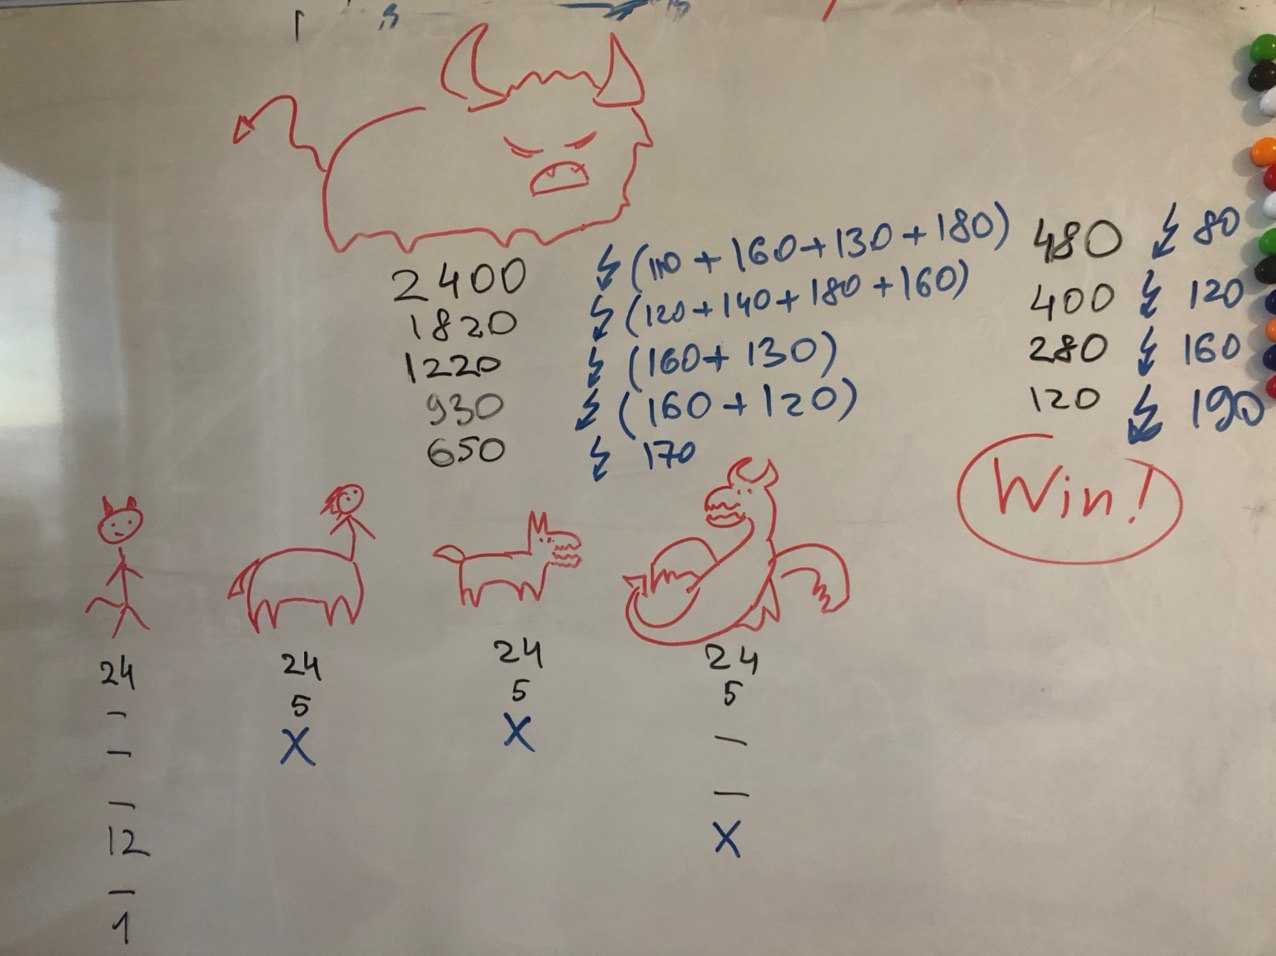 2400 (110 + 160 + 130 + 180)
1820 (120 + 140 + 180 + 160)
1220 (160 + 130)
930 (160 + 120)
650 170
480 80
400 120
280 160
120 190
Win!
24 24 24 24
- 5 5 5
- X X -
- -
12 X
-
1